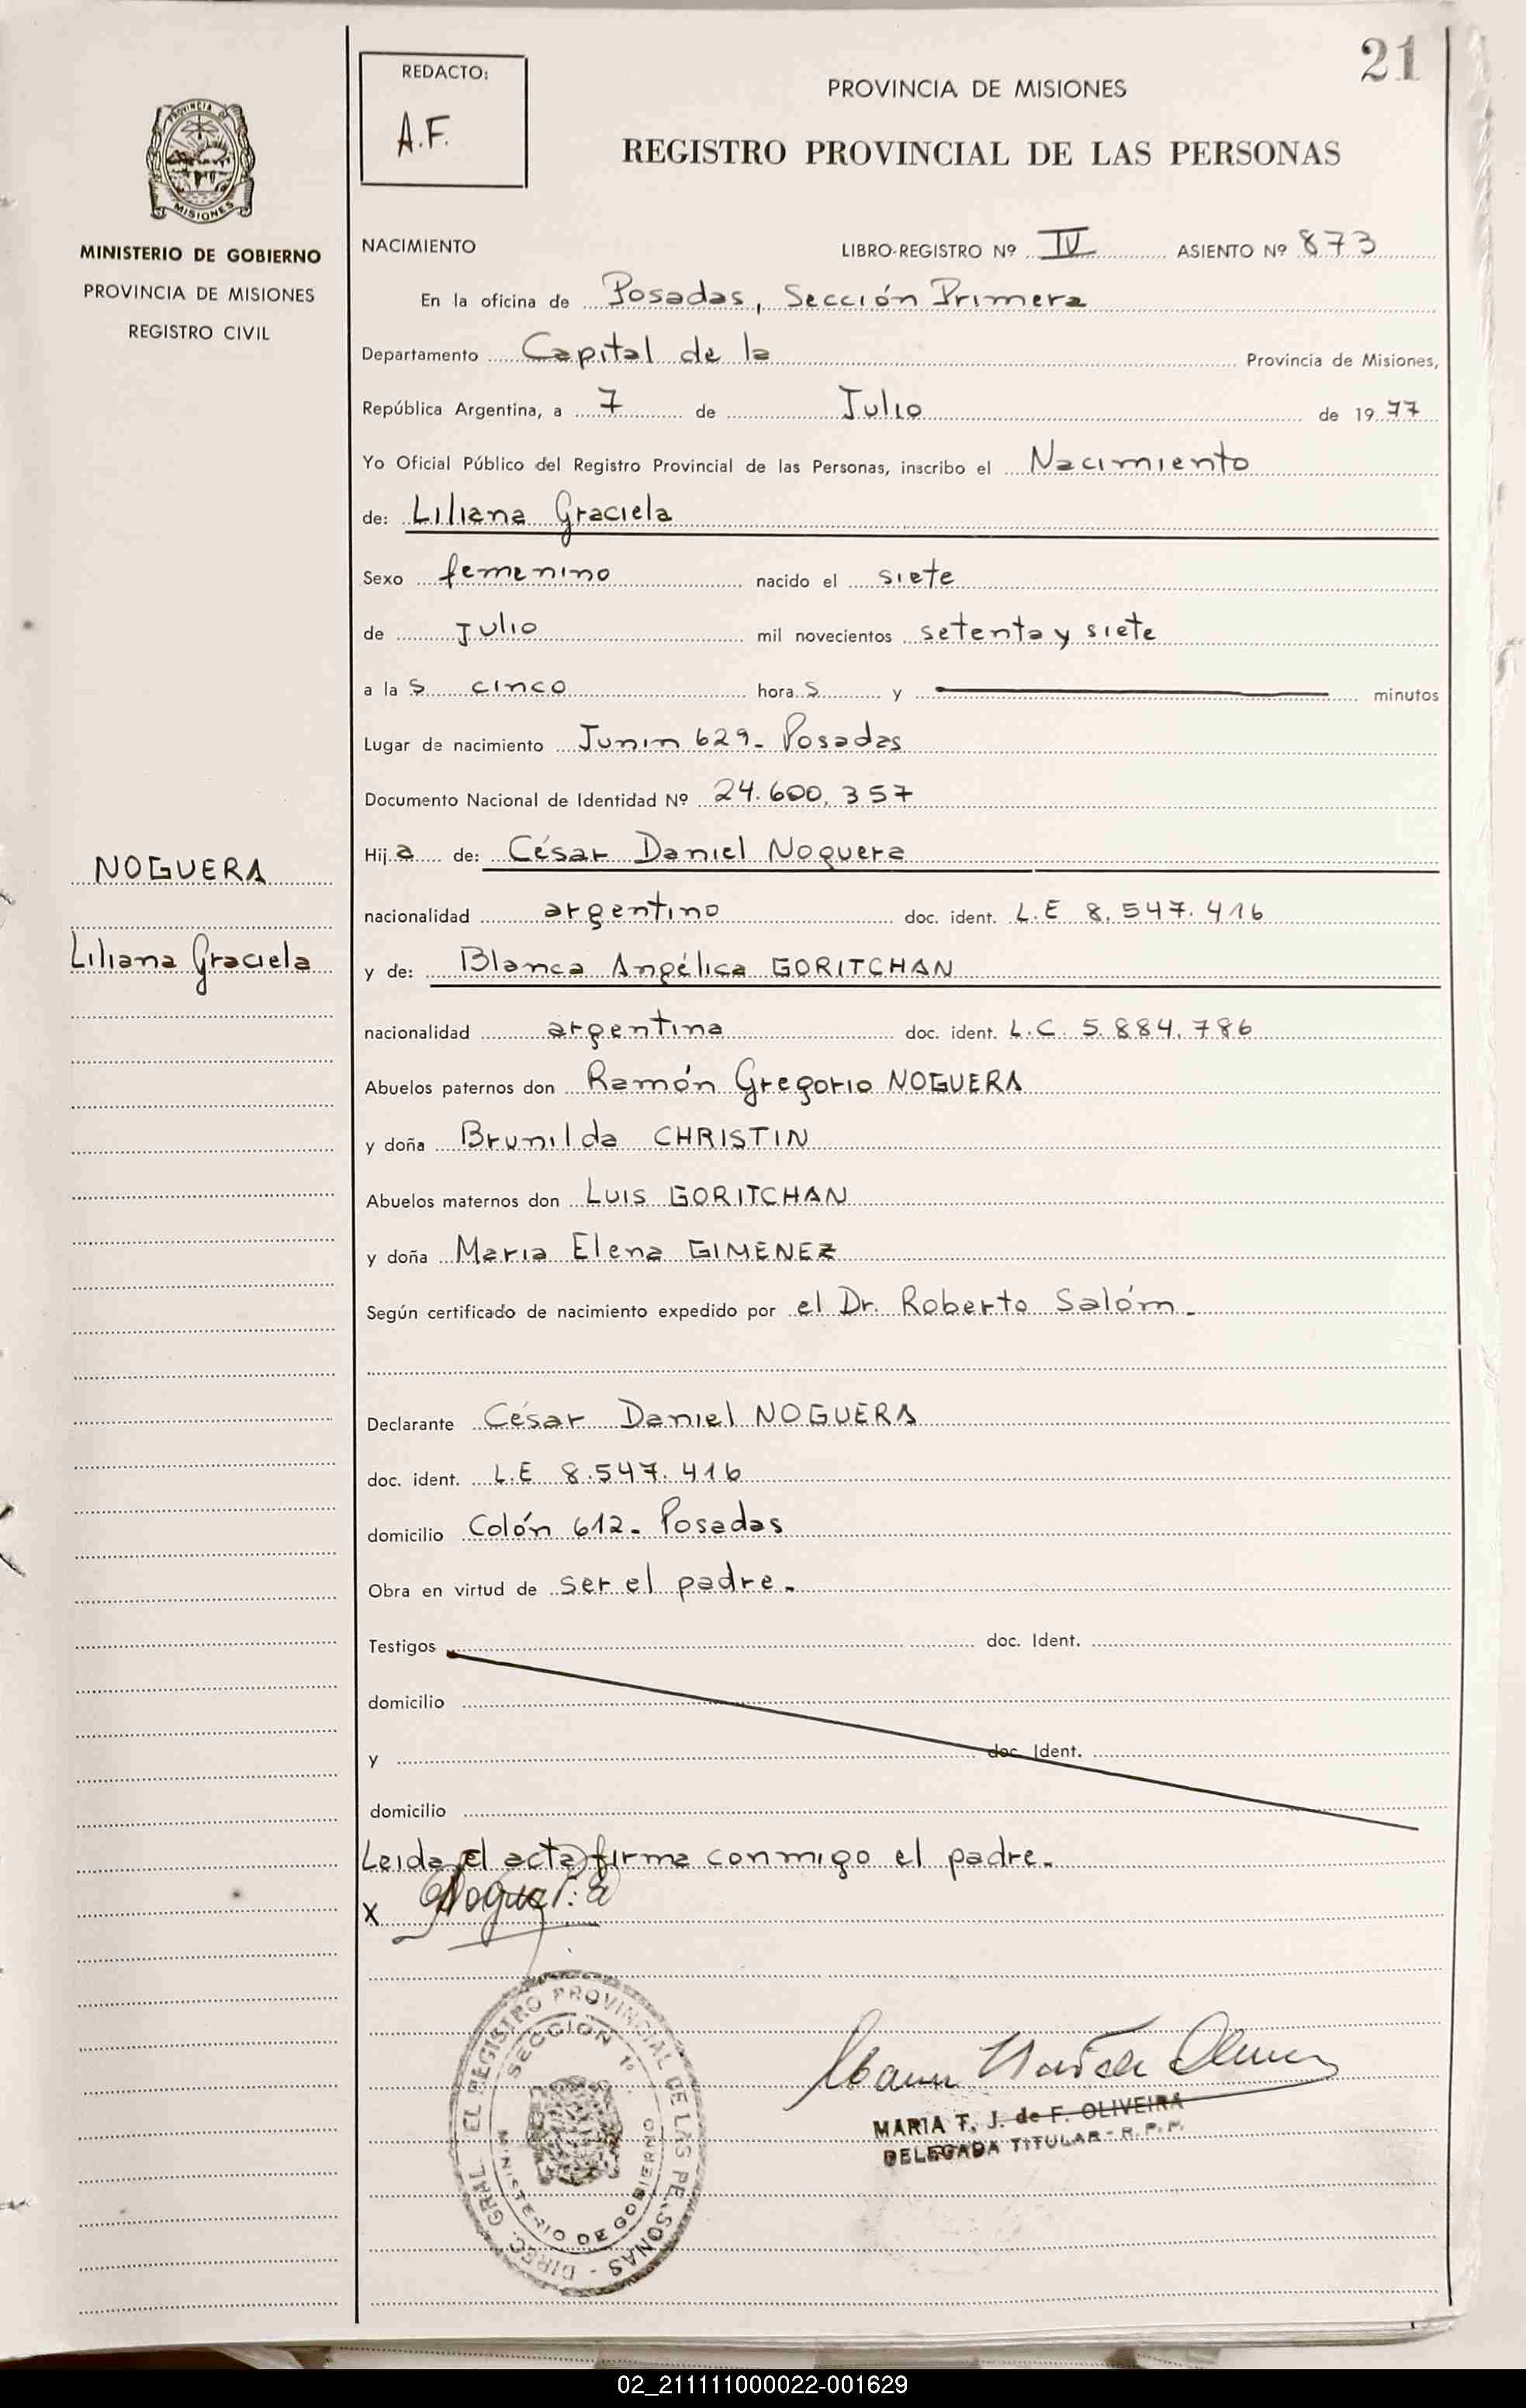 21
REDACTO:
A.F.
PROVINCIA DE MISIONES
REGISTRO PROVINCIAL DE LAS PERSONAS
PROVINCIA DE
MISIONES
MINISTERIO DE GOBIERNO
PROVINCIA DE MISIONES
REGISTRO CIVIL
NACIMIENTO LIBRO-REGISTRO Nº IV ASIENTO Nº 873
En la oficina de Posadas, Sección Primera
Departamento Capital de la Provincia de Misiones,
República Argentina, a 7 de Julio de 1977
Yo Oficial Público del Registro Provincial de las Personas, inscribo el Nacimiento
de: Liliana Graciela
Sexo femenino nacido el siete
de Julio mil novecientos setenta y siete
a las cinco horas y minutos
Lugar de nacimiento Junin 629- Posadas
Documento Nacional de Identidad Nº 24.600.357
NOGUERA
Liliana Graciela
Hija de: César Daniel Noguera
nacionalidad argentino doc. ident. L.E 8.547.416
y de: Blanca Angélica GORITCHAN
nacionalidad argentina doc. ident. L.C. 5.884.786
Abuelos paternos don Ramón Gregorio NOGUERA
y doña Brunilda CHRISTIN
Abuelos maternos don Luis GORITCHAN
y doña Maria Elena GIMENEZ
Según certificado de nacimiento expedido por el Dr. Roberto Salóm-
Declarante César Daniel NOGUERA
doc. ident. L.E 8.547.416
domicilio Colón 612- Posadas
Obra en virtud de ser el padre-
Testigos doc. Ident.
domicilio
y doc. Ident.
domicilio
Leida el acta firma conmigo el padre-
X Noguera
DIREC. GRAL. EL REGISTRO PROVINCIAL DE LAS PERSONAS -
SECCION 1º
MINISTERIO DE GOBIERNO
MARIA T. J. de F. OLIVEIRA
DELEGADA TITULAR - R. P. P.
02_211111000022-001629